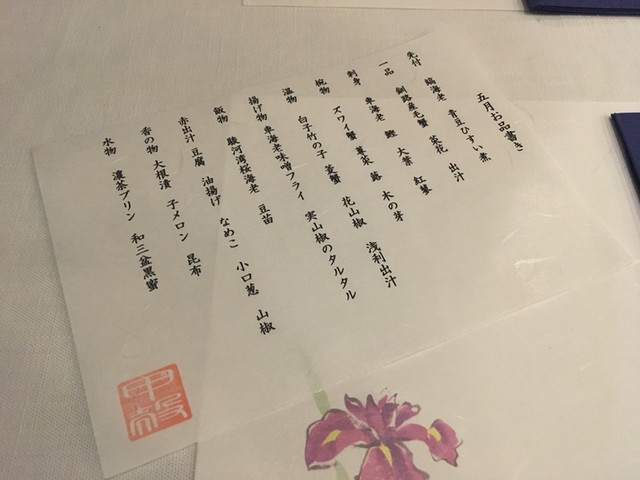 五月お品書き
先付 縞海老 青豆ひすい煮
一品 釧路産毛蟹 菜花 出汁
刺身 車海老 鰹 大葉 紅蟹
椀物 ズワイ蟹 蓴菜 蕗 木の芽
温物 白子竹の子 菱蟹 花山椒 浅利出汁
揚げ物 車海老味噌フライ 実山椒のタルタル
飯物 駿河湾桜海老 豆苗
赤出汁 豆腐 油揚げ なめこ 小口葱 山椒
香の物 大根漬 子メロン 昆布
水物 濃茶プリン 和三盆黒蜜
甲殻